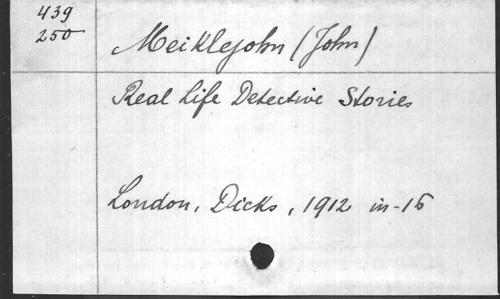 439
250
Meiklejohn (John)
Real Life Detective Stories
London, Dicks, 1912 in-16